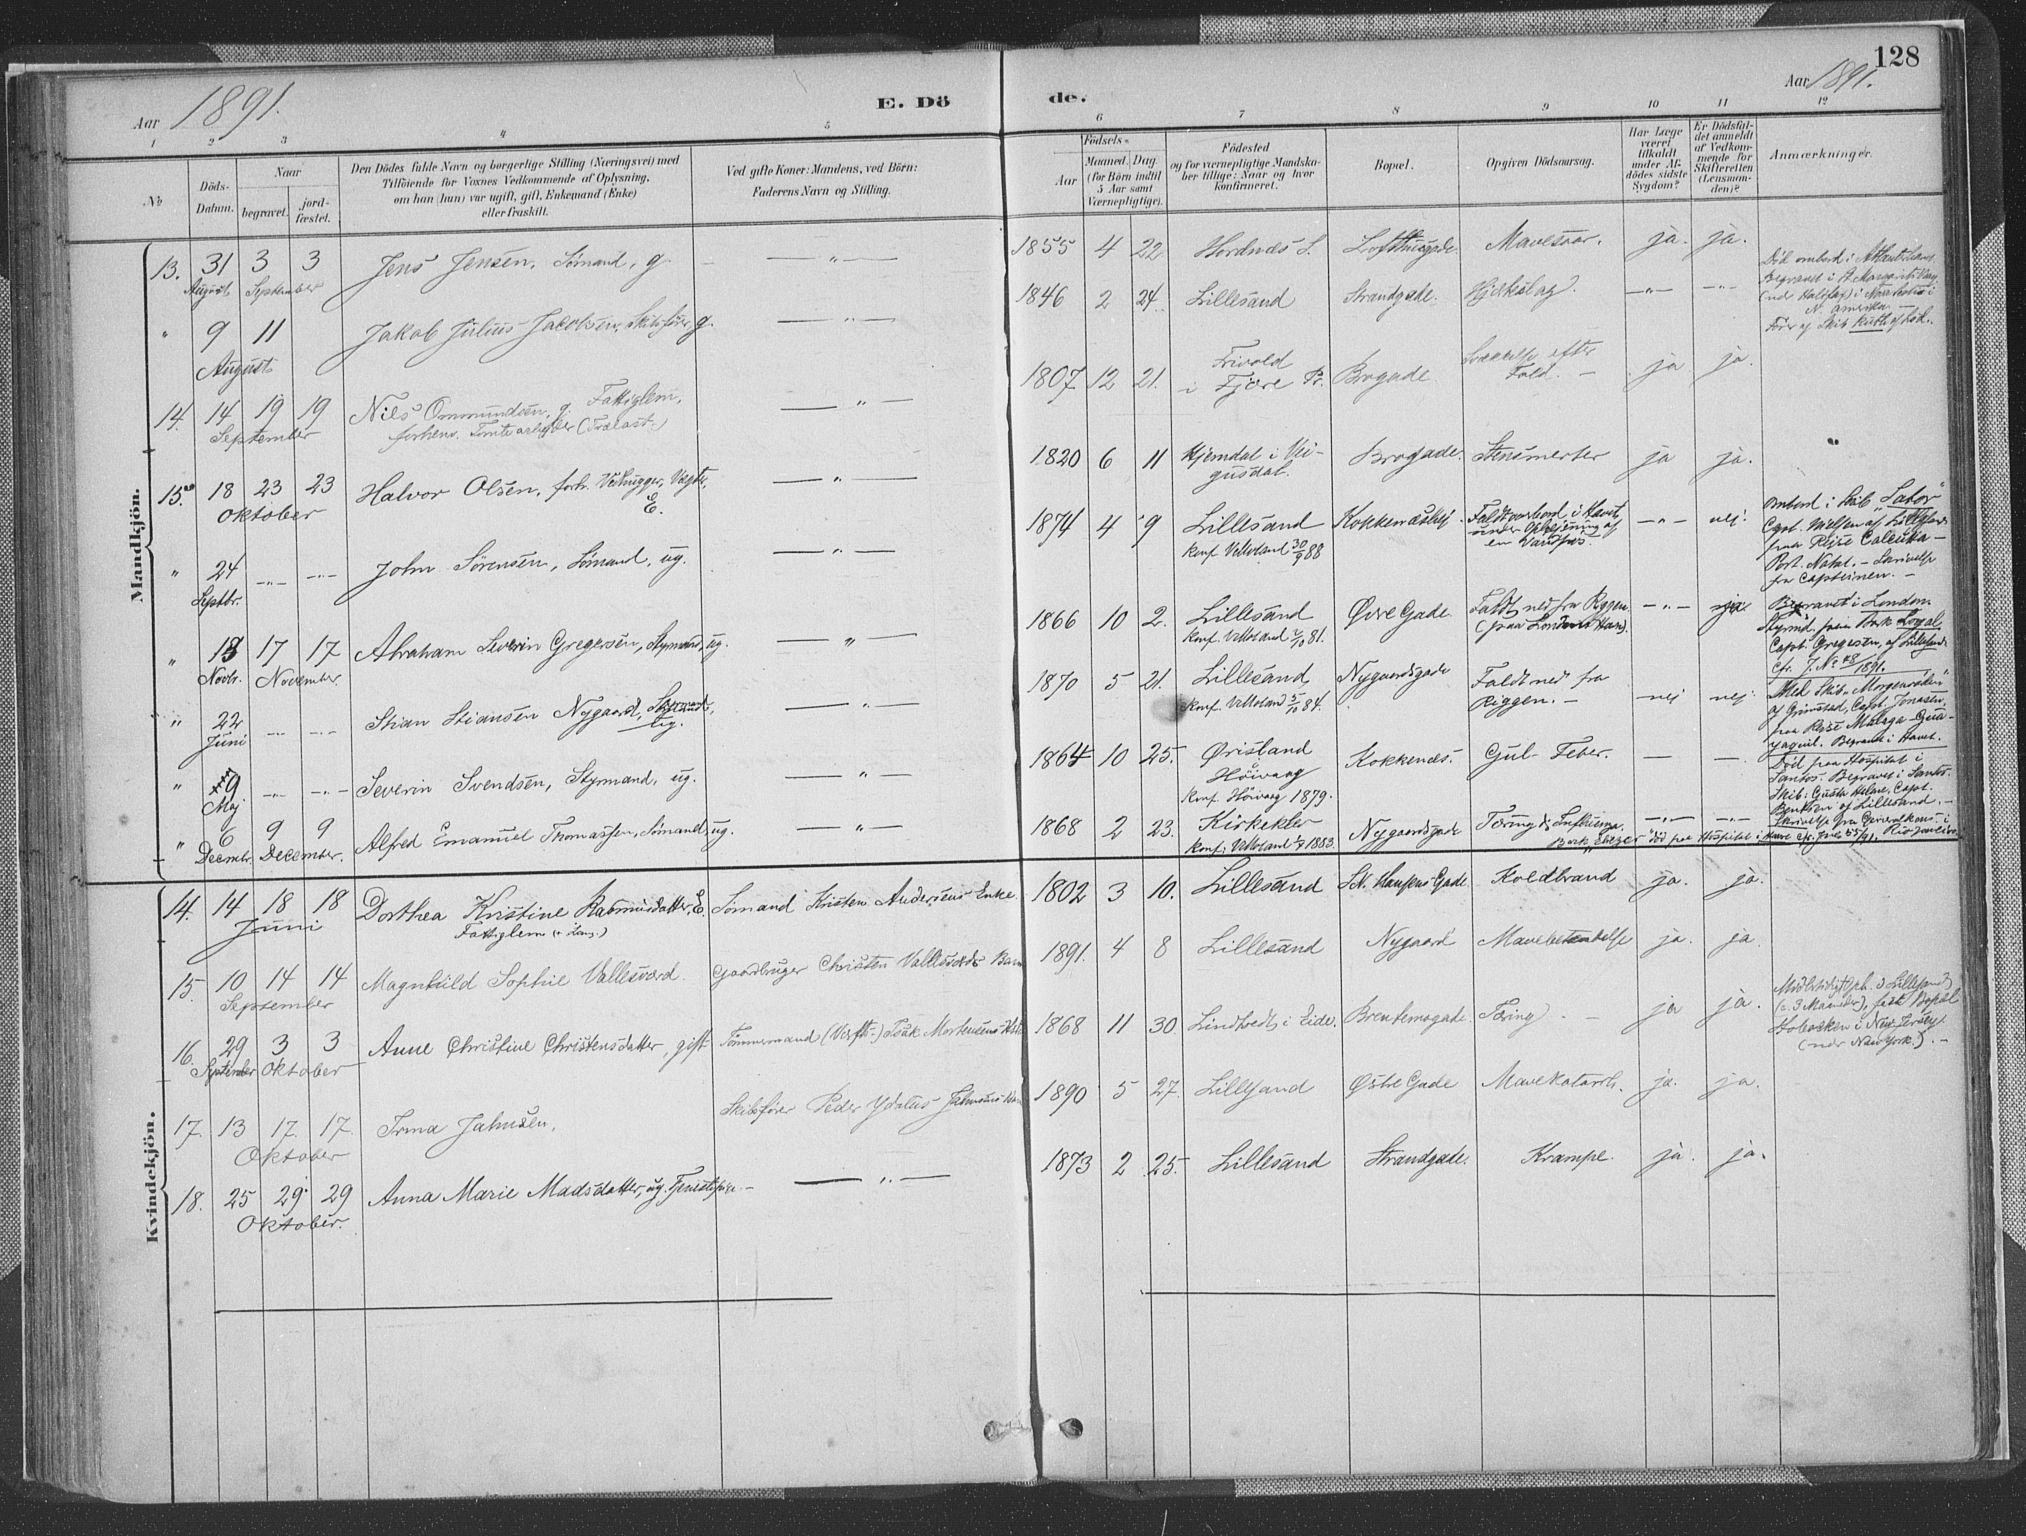 128
Aar 1891.
E. Döde.
Aar 1891.
1 2 3 4 5 6 7 8 9 10 11 12
№
Döds-Datum.
Naar
begravet.
jord-fæstet.
Den Dödes fulde Navn og borgerlige Stilling (Næringsvei) med
Tilföiende for Voxnes Vedkommende af Oplysning,
om han (hun) var ugift, gift, Enkemand (Enke)
eller fraskilt.
Ved gifte Koner: Mandens, ved Börn:
Faderens Navn og Stilling.
Födsels-
Aar
Maaned. Dag.
(for Börn indtil
5 Aar samt
Værnepligtige).
Födested
og for værnepligtige Mandska-
ber tillige: Naar og hvor
konfirmeret.
Bopæl.
Opgiven Dödsaarsag.
Har Læge
været
tilkaldt
under Af-
dödes sidste
Sygdom?
Er Dödsfal-
det anmeldt
af Vedkom-
mende for
Skifteretten
(Lensman-
den)?
Anmærkninger.
Mandkjön.
13. 31 August 3 3 September Jens Jensen, Sømand, g. — " — 1855 4 22 Hordnæs S. Lofthusgade. Mavesaar. ja. ja.
" 9 11 August Jakob Julius Jacobsen, Skibsfører, g. — " — 1846 2 24. Lillesand Strandgade. Hjerteslag. —"— —"—
Død ombord i Atlanterhavet.
Begravet i St. Margarets Bay
(nær Halifax) i
N. Amerika
Fører af Skib Ruth af
14. 14 19 19 September Nils Ommundsen, g. Fattiglem,
forhenv. Tomtearbeider (Trælast.) — " — 1807 12 21. Frivold
i Fjære Pr. Brogade Svækkelse efter
Fald. — ja ja.
15. 18 23 23 Oktober Halvor Olsen, forh. Vedhugger, Vægter,
E. — " — 1820 6 11 Hjemdal i Vei-
gusdal. Brogade. Stensmerter ja ja. "
" 24 Septbr. —"— —"— John Sørensen, Sømand, ug. — " — 1874 4 9 Lillesand
Konf. Vesteland 30/9 88 Kokkenæshei. Faldt overbord i Havet
under Opheisning af
en Vandpøs. —"— nej.
Ombord i Skib "Sator"
Capt. Nielsen af Lillesand
paa Reise Calcutta —
Port. Natal. — Skrivelse
fra Capteinen. —
" 13 Novbr. 17 17 November. Abraham Severin Gregersen, Styrmand, ug. — " — 1866 10 2. Lillesand
Konf. Vesteland 2/10 81. Øvre Gade. Faldt ned fra Riggen.
(paa Londons Havn). —"— ja
Begravet i London
Styrmd. paa Bark Loyal
Capt. Gregersen, af Lillesand
Cfr. J. No 48/1891.
" 22 Juni —"— —"— Stian Stiansen Nygaard, Styrmand,
ug. — " — 1870 5 21. Lillesand
Konf. Vesteland 5/10 84. Nygaardsgade Faldt ned fra
Riggen. — nej nej.
Med Skib "Morgenrøden"
af Grimstad, Capt. Jonassen,
paa Reise Malaga — Gua-
yaquil. Begravet i Havet.
" 9 Maj —"— —"— Severin Svendsen, Styrmand, ug. — " — 1864 10 25. Øristland
i Høivaag
Konf. Høivaag 1879. Kokkenæs. Gul-Feber. — —
Død paa Hospitalet i
Santos. Begravet i Santos.
Skib: Gusta Helene, Capt.
Bentsen af Lillesand. —
Skrivelse fra Generalkons. i
Rio Janeiro
" 6 Decembr. 9 9 December. Alfred Emanuel Thomassen, Sømand, ug. — " — 1868 2 23. Kirkekler
Konf. Vesteland 1883. Nygaardsgade Tæring & Influenza.
Bark "Ebezer" død paa Hospitalet i Havre cfr. J. No 55/91. —"— —"—
Kvindekjön.
14. 14 18 18 Juni Dorthea Kristine Rasmusdatter, E.
Fattiglem Sømand Kristen Andersens Enke 1802 3 10. Lillesand St. Hansens Gade Koldbrand ja. ja.
15. 10 14 14 September Magnhild Sophie Vallesværd. Gaardbruger Christen Vallesværds Barn 1891. 4 8 Lillesand Nygaard Mavebetændelse ja. ja
16. 29 September 3 3 Oktober Anne Christine Christensdatter, gift Tømmermand (Værft-) Isak Mortensens 1868 11 30 Lindtvedt i Eide. Brentemogade. Tæring. — ja ja.
Midlertidigt oph. i Lillesand
(c. 3 Maaneder), fast Bopæl
Hoboken i New Jersey
(nær New York). —
17. 13 17. 17. Oktober Irma Jahnsen. Skibsfører Peder Ydalus Jahnsens Barn 1890 5 27. Lillesand Østre Gade Mavekatarrh. ja. ja.
18. 25 29 29 Oktober. Anna Marie Madsdatter, ug. Tjenestepige. — — " — 1873 2 25. Lillesand Strandgade. Krampe. ja. ja.